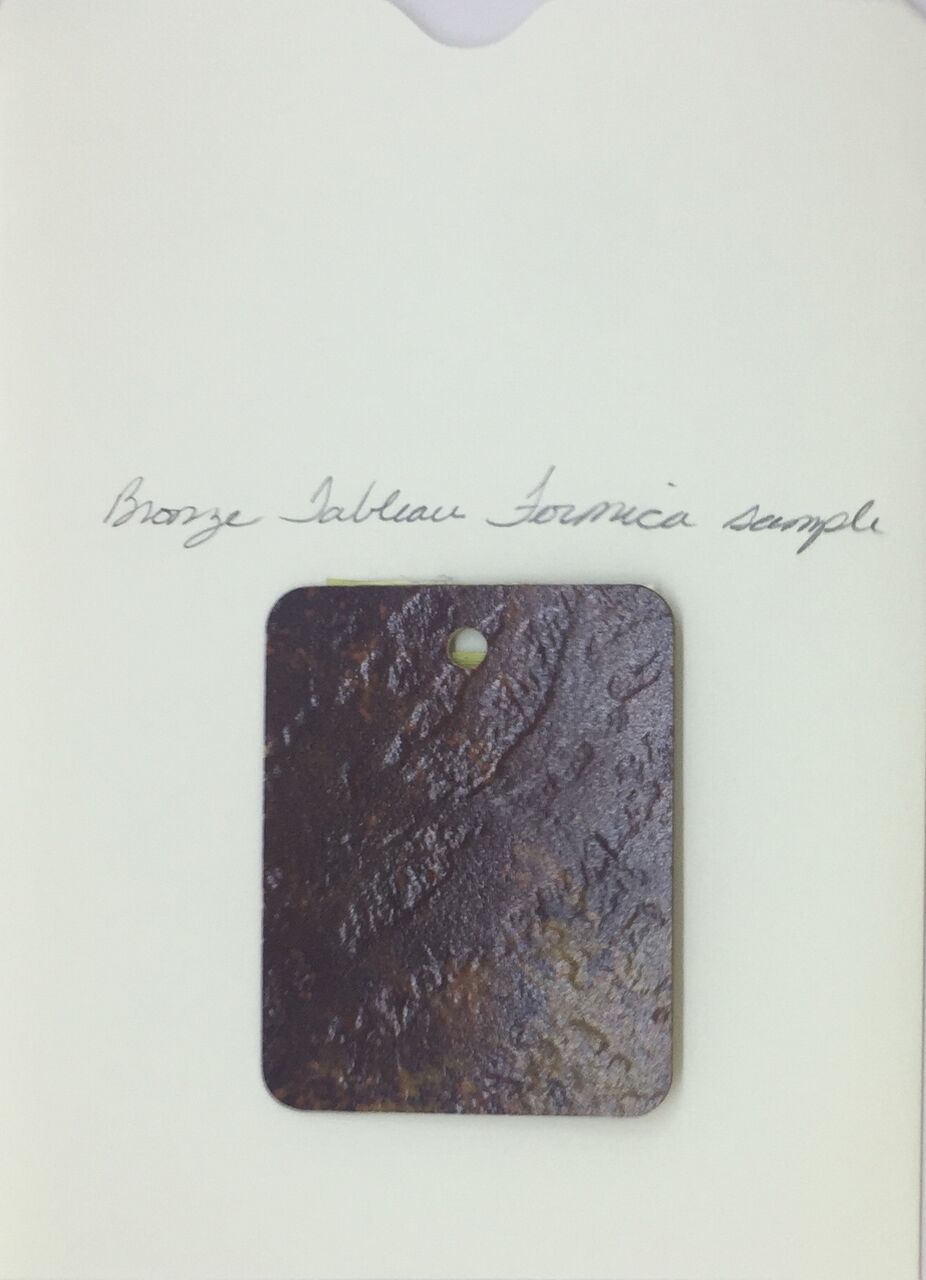 Bronze Tableau Formica sample